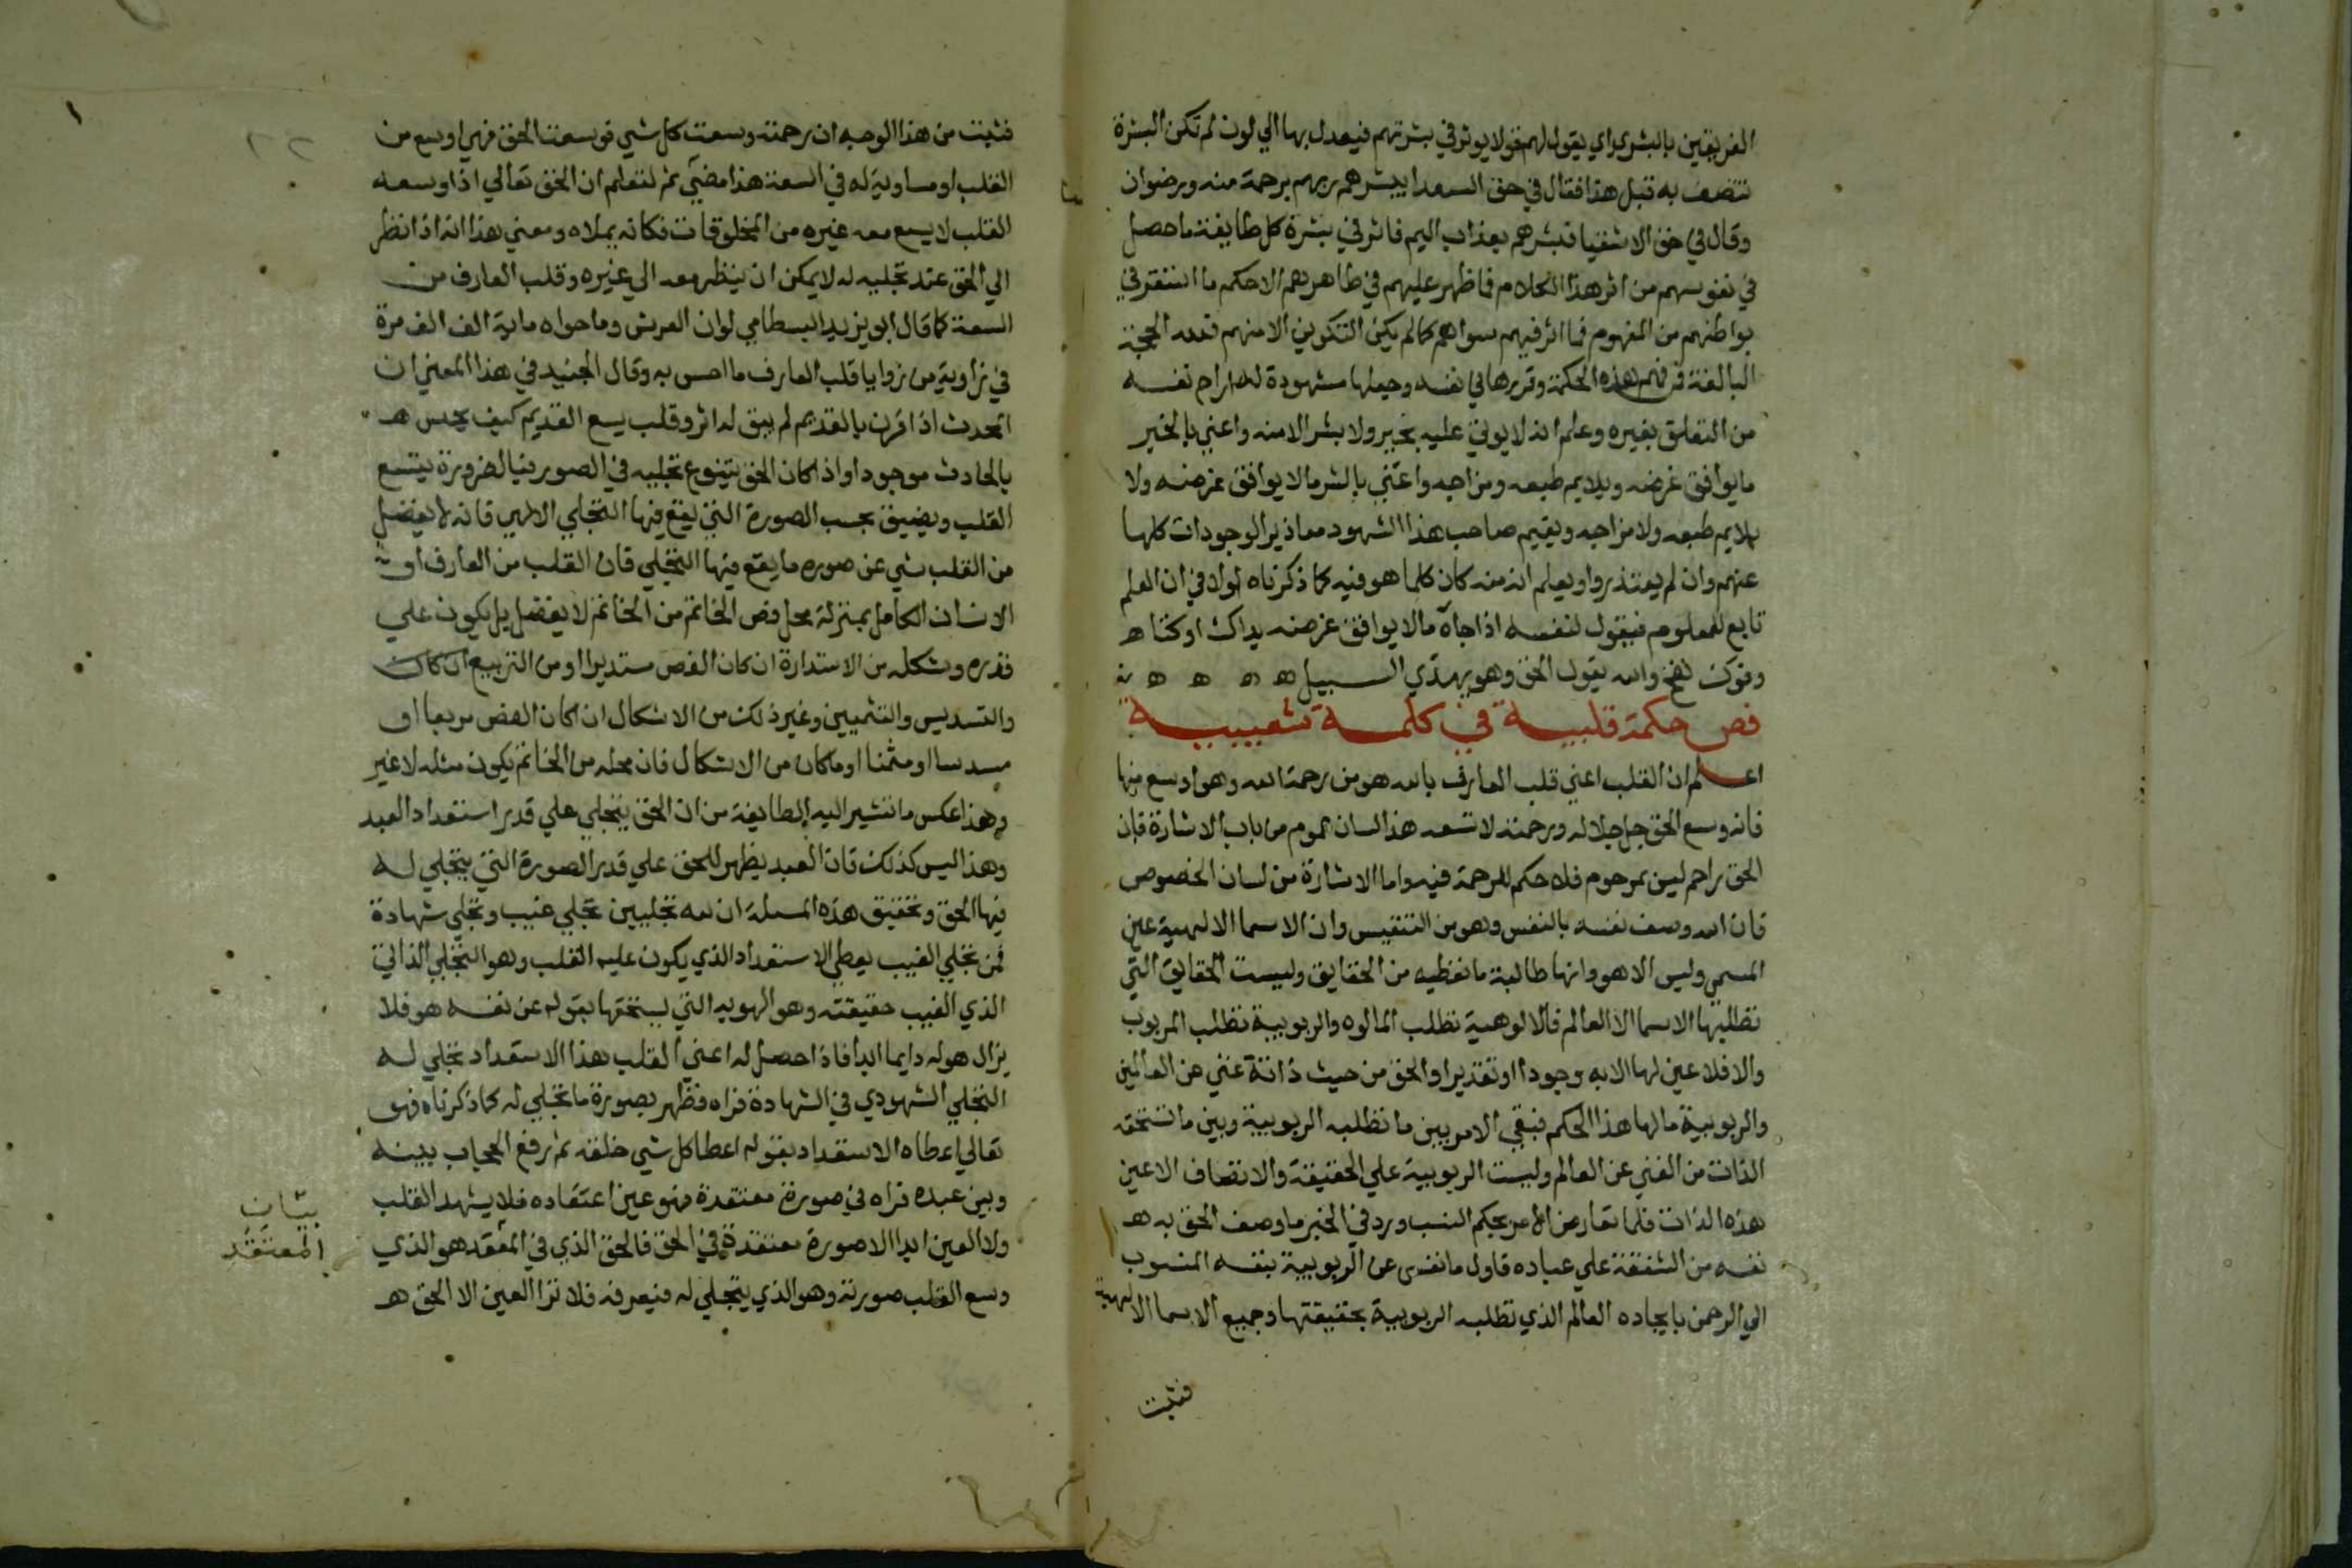 الفريقين بالبشري اي يقول لهم قولا يوثر في بشرتهم فيعدل بها الي لون لم تكن البشرة
تتصف به قبل هذا فقال في حق السعدا يبشرهم ربهم برحمة منه ورضوان
وقال في حق الاشقيا فبشرهم بعذاب اليم فاثر في بشرة كل طايفة ما حصل
في نفوسهم من اثر هذا الكلام فما ظهر عليهم في ظاهرهم الا حكم ما استقر في
بواطنهم من المفهوم فما اثر فيهم سواهم كما لم يكن التكوين الا منهم فلله الحجة
البالغة فمن فهم هذه الحكمة وقررها في نفسه وجعلها مشهودة له اراح نفسه
من التعلق بغيره وعلم انه لا يوتي عليه بخير ولا بشر الا منه واعني بالخير
ما يوافق غرضه ويلايم طبعه ومزاجه واعني بالشر ما لا يوافق غرضه ولا
يلايم طبعه ولا مزاجه ويقيم صاحب هذا الشهود معاذير الموجودات كلها
عنهم وان لم يعتذروا ويعلم انه منه كان كلما هو فيه كما ذكرناه اولا في ان العلم
تابع للمعلوم فيقول لنفسه اذا جاه ما لا يوافق غرضه يداك اوكتا ه
وفوك نفخ والله يقول الحق وهو يهدي السبيل ه ه ه ه
فص حكمة قلبية في كلمة شعيبية
اعلم ان القلب اعني قلب العارف بالله هو من رحمة الله وهو اوسع منها
فانه وسع الحق جل جلاله ورحمته لا تسعه هذا لسان عموم من باب الاشارة فان
الحق راحم ليس بمرحوم فلا حكم للرحمة فيه واما الاشارة من لسان الخصوص
فان الله وصف نفسه بالنفس وهو من التنفيس وان الاسما الالهية عين
المسمي وليس الا هو وانها طالبة ما تعطيه من الحقايق وليست الحقايق التي
تطلبها الاسما الا العالم فالالوهية تطلب المالوه والربوبية تطلب المربوب
والا فلا عين لها الا به وجودا او تقديرا والحق من حيث ذاته غني عن العالمين
والربوبية ما لها هذا الحكم فبقي الامر بين ما تطلبه الربوبية وبين ما تستحقه
الذات من الغني عن العالم وليست الربوبية علي الحقيقة والاتصاف الا عين
هذه الذات فلما تعارض الامر بحكم النسب ورد في الخبر ما وصف الحق به ه
نفسه من الشفقة علي عباده فاول ما نفس عن الربوبية بنفسه المنسوب
الي الرحمن بايجاده العالم الذي تطلبه الربوبية بحقيقتها وجميع الاسما الالهية
فثبت
فثبت من هذا الوجه ان رحمته وسعت كل شي فوسعت الحق فهي اوسع من
القلب او مساوية له في السعة هذا مضي ثم لتعلم ان الحق تعالي اذا وسعه
القلب لا يسع معه غيره من المخلوقات فكانه يملاه ومعني هذا انه اذا نظر
الي الحق عند تجليه له لا يمكن ان ينظر معه الي غيره وقلب العارف من
السعة كما قال ابو يزيد البسطامي لو ان العرش وما حواه ماية الف الف مرة
في زاوية من زوايا قلب العارف ما احس به وقال الجنيد في هذا المعني ان
المحدث اذا قرن بالقديم لم يبق له اثر وقلب يسع القديم كيف يحس ه
بالحادث موجودا واذا كان الحق يتنوع تجليه في الصور فبالضرورة يتسع
القلب ويضيق بحسب الصورة التي يقع فيها التجلي الالهي فانه لا يفضل
من القلب شي عن صوره ما يقع فيها التجلي فان القلب من العارف او
الانسان الكامل بمنزلة محل فص الخاتم من الخاتم لا يفضل بل يكون علي
قدره وشكله من الاستدارة ان كان الفص مستديرا او من التربيع ان كان
والتسديس والتثمين وغير ذلك من الاشكال ان كان الفص مربعا او
مسدسا او مثمنا او ما كان من الاشكال فان محله من الخاتم يكون مثله لا غير
وهذا عكس ما تشير اليه الطايفة من ان الحق يتجلي علي قدر استعداد العبد
وهذا ليس كذلك فان العبد يظهر للحق علي قدر الصورة التي يتجلي له
فيها الحق وتحقيق هذه المسلة ان لله تجليين تجلي غيب وتجلي شهادة
فمن تجلي الغيب يعطي الاستعداد الذي يكون عليه القلب وهو التجلي الذاتي
الذي الغيب حقيقته وهو الهويه التي يستحقها بقوله عن نفسه هو فلا
يزال هو له دايما ابدا فاذا حصل له اعني القلب هذا الاستعداد تجلي له
التجلي الشهودي في الشهادة فراه فظهر بصورة ما تجلي له كما ذكرناه فهو
تعالي اعطاه الاستعداد بقوله اعطا كل شي خلقه ثم رفع الحجاب بينه
وبين عبده فراه في صورة معتقدة فهو عين اعتقاده فلا يشهد القلب
ولا العين ابدا الا صورة معتقدة في الحق فالحق الذي في المعتقد هو الذي
وسع القلب صورته وهو الذي يتجلي له فيعرفه فلا ترا العين الا الحق ه
بيان
المعتقد